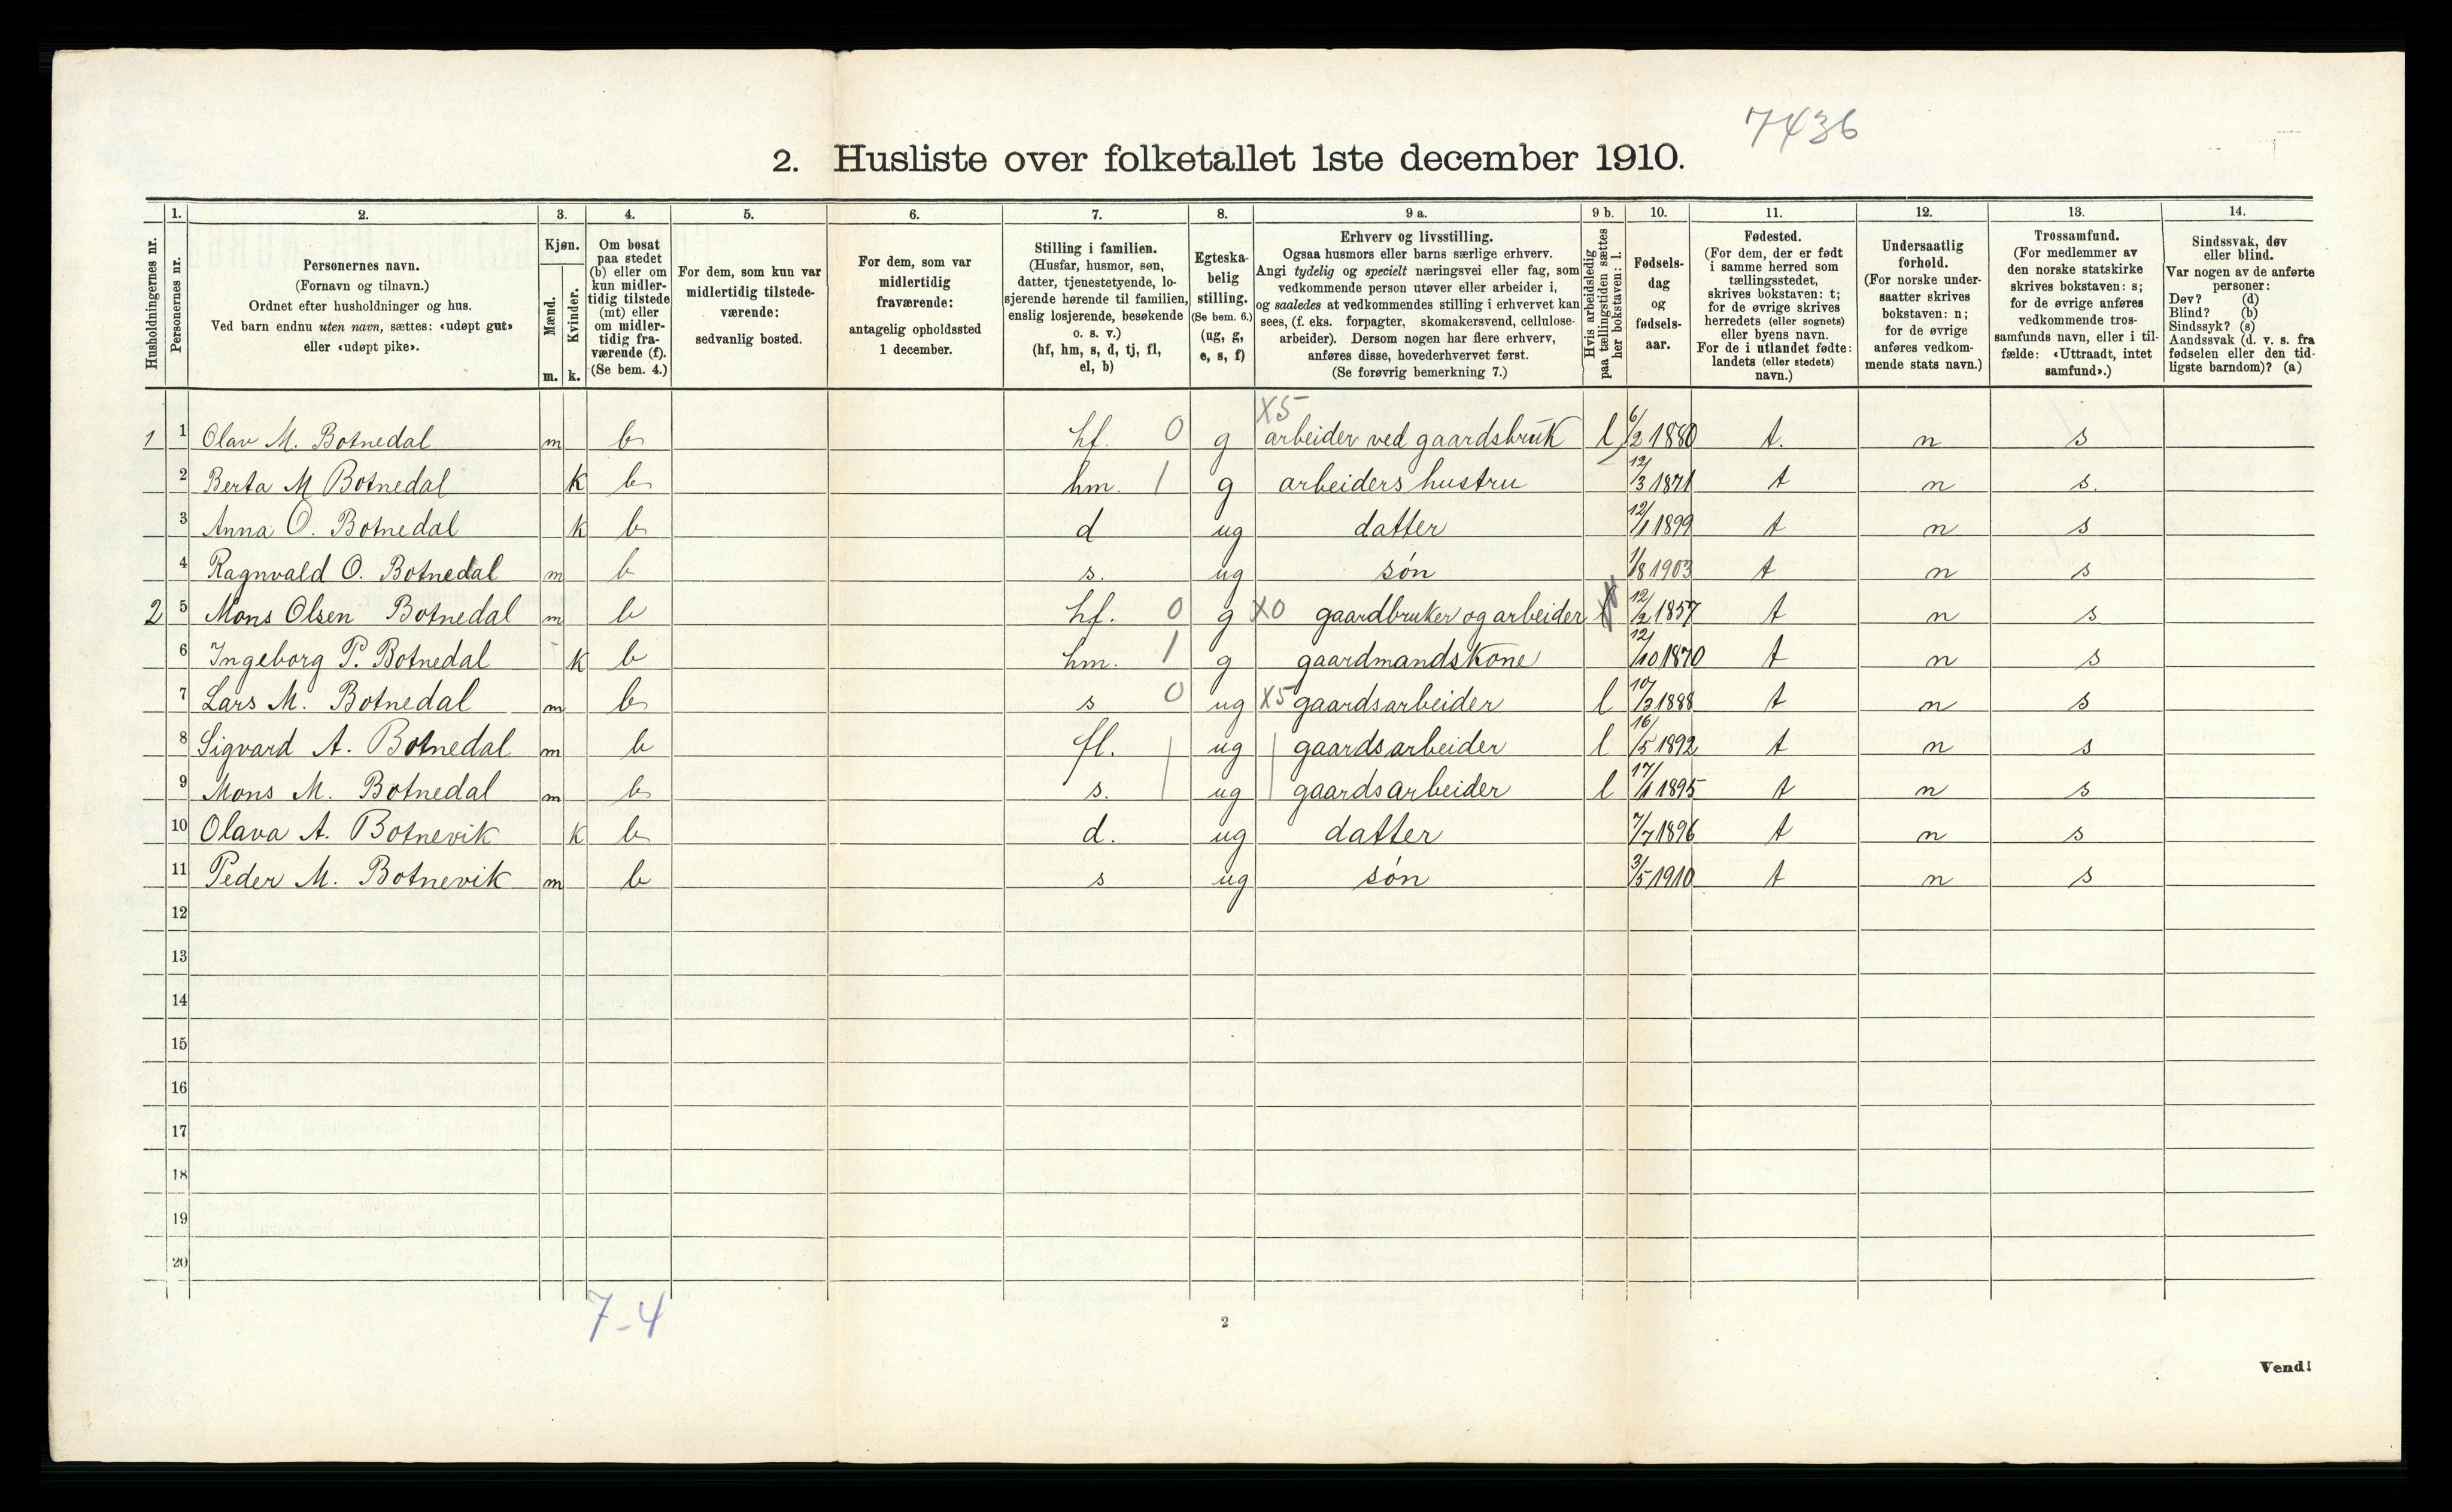 7436
2. Husliste over folketallet 1ste december 1910.
Husholdningernes nr.
1.
Personernes nr.
2.
Personernes navn.
(Fornavn og tilnavn.)
Ordnet efter husholdninger og hus.
Ved barn endnu uten navn, sættes: «udøpt gut»
eller «udøpt pike».
3.
Kjøn.
Mænd.
Kvinder.
m. k.
4.
Om bosat
paa stedet
(b) eller om
kun midler-
tidig tilstede
(mt) eller
om midler-
tidig fra-
værende (f).
(Se bem. 4.)
5.
For dem, som kun var
midlertidig tilstede-
værende:
sedvanlig bosted.
6.
For dem, som var
midlertidig
fraværende:
antagelig opholdssted
1 december.
7.
Stilling i familien.
(Husfar, husmor, søn,
datter, tjenestetyende, lo-
sjerende hørende til familien,
enslig losjerende, besøkende
o. s. v.)
(hf, hm, s, d, tj, fl,
el, b)
8.
Egteska-
belig
stilling.
(Se bem. 6.)
(ug, g,
e, s, f)
9 a.
Erhverv og livsstilling.
Ogsaa husmors eller barns særlige erhverv.
Angi tydelig og specielt næringsvei eller fag, som
vedkommende person utøver eller arbeider i,
og saaledes at vedkommendes stilling i erhvervet kan
sees, (f. eks. forpagter, skomakersvend, cellulose-
arbeider). Dersom nogen har flere erhverv,
anføres disse, hovederhvervet først.
(Se forøvrig bemerkning 7.)
9 b.
Hvis arbeidsledig
paa tællingstiden sættes
her bokstaven: l.
10.
Fødsels-
dag
og
fødsels-
aar.
11.
Fødested.
(For dem, der er født
i samme herred som
tællingsstedet,
skrives bokstaven: t;
for de øvrige skrives
herredets (eller sognets)
eller byens navn.
For de i utlandet fødte:
landets (eller stedets)
navn.)
12.
Undersaatlig
forhold.
(For norske under-
saatter skrives
bokstaven: n;
for de øvrige
anføres vedkom-
mende stats navn.)
13.
Trossamfund.
(For medlemmer av
den norske statskirke
skrives bokstaven: s;
for de øvrige anføres
vedkommende tros-
samfunds navn, eller i til-
fælde: «Uttraadt, intet
samfund».)
14.
Sindssvak, døv
eller blind.
Var nogen av de anførte
personer:
Døv? (d)
Blind? (b)
Sindssyk? (s)
Aandssvak (d. v. s. fra
fødselen eller den tid-
ligste barndom)? (a)
1 1 Olav M. Botnedal m b hf. 0 g X5 arbeider ved gaardsbruk l 6/2 1880 t. n s
2 Berta M Botnedal k b hm. 1 g arbeiders hustru 12/3 1871 t n s.
3 Anna O. Botnedal k b d ug datter 12/1 1899 t n s
4 Ragnvald O. Botnedal m b s. ug søn 1/8 1903 t n s
2 5 Mons Olsen Botnedal m b hf. 0 g X0 gaardbruker og arbeider 12/2 1857 t n s
6 Ingeborg P. Botnedal k b hm. 1 g gaardmandskone 12/10 1870 t n s
7 Lars M. Botnedal m b s 0 ug X5 gaardsarbeider l 10/3 1888 t n s
8 Sigvard A. Botnedal m b fl. | ug | gaardsarbeider l 16/5 1892 t n s
9 Mons M. Botnedal m b s. | ug | gaardsarbeider l 17/1 1895 t n s
10 Olava A. Botnevik k b d. ug datter 7/7 1896 t n s
11 Peder M. Botnevik m b s ug søn 3/5 1910 t n s
12
13
14
15
16
17
18
19
20
7-4
2
Vend!